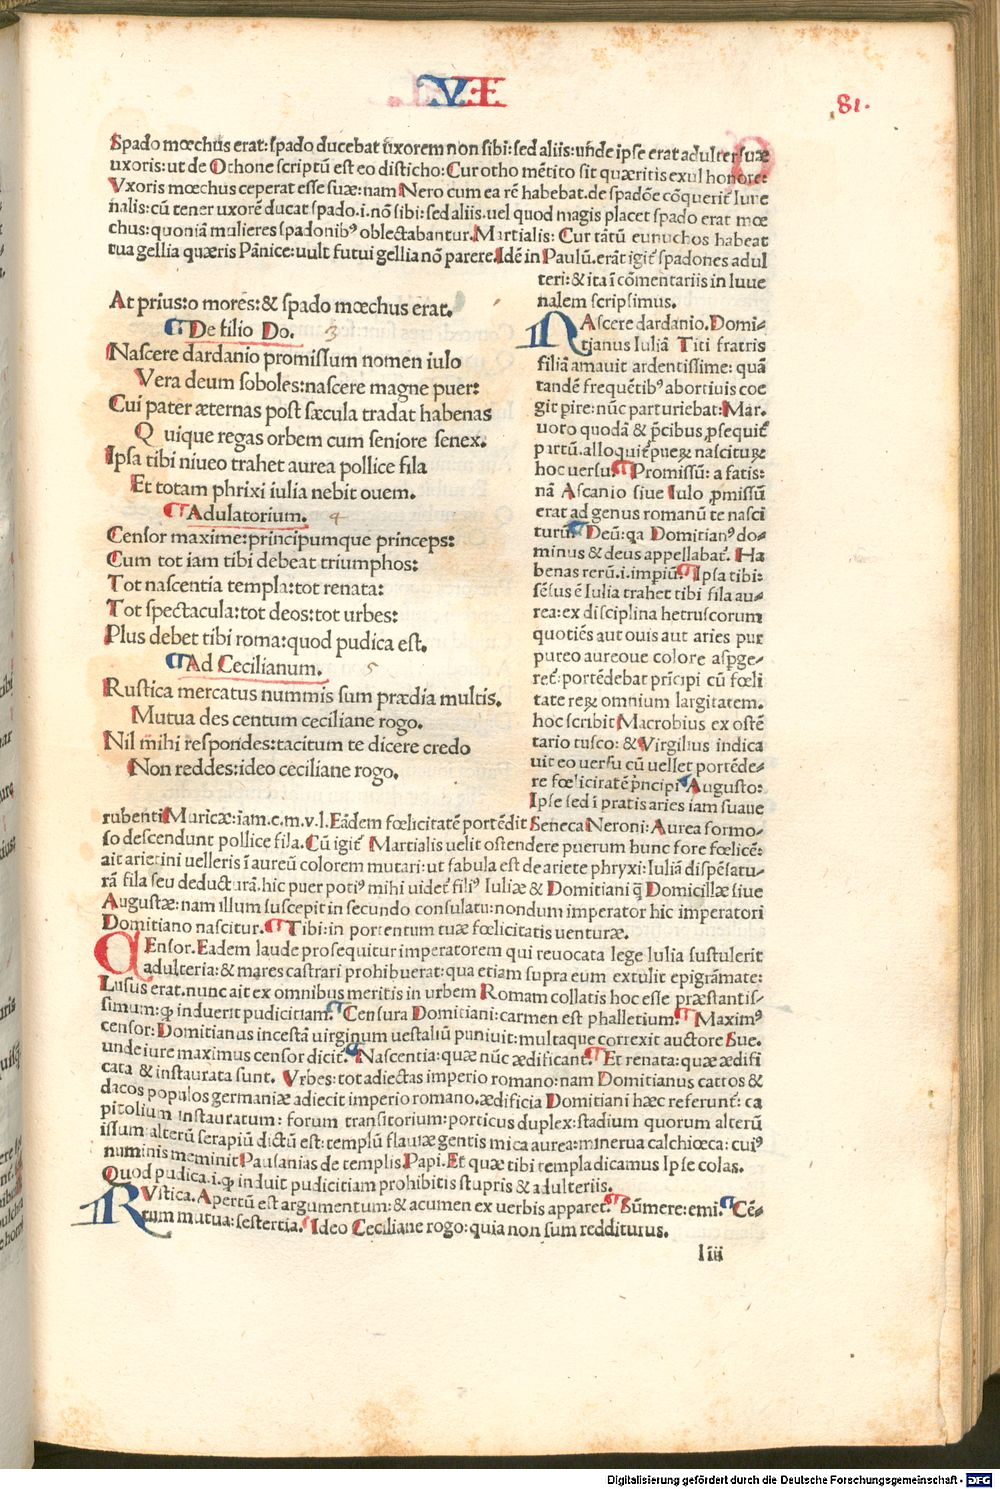 V E
81.
Spado mœchus erat: spado ducebat uxorem non sibi: sed aliis: unde ipse erat adulter suæ
uxoris: ut de Othone scriptū est eo disticho: Cur otho mētito sit quæritis exul honore:
Vxoris mœchus ceperat esse suæ: nam Nero cum ea rē habebat. de spadōe cōquerit̄ Iuue
nalis: cū tener uxorē ducat spado. i. nō sibi: sed aliis. uel quod magis placet spado erat mœ
chus: quoniā mulieres spadonibꝰ oblectabantur. Martialis: Cur tātū eunuchos habeat
tua gellia quæris Pānice: uult futui gellia nō parere. Idē in Paulū. erāt igit̄ spadones adul
teri: & ita ī cōmentariis in Iuue
nalem scripsimus.
At prius: o mores: & spado mœchus erat.
De filio Do. 3
Nascere dardanio promissum nomen iulo
Vera deum soboles: nascere magne puer:
Cui pater æternas post sæcula tradat habenas
Quique regas orbem cum seniore senex.
Ipsa tibi niueo trahet aurea pollice fila
Et totam phrixi iulia nebit ouem.
Adulatorium. 4
Censor maxime: principumque princeps:
Cum tot iam tibi debeat triumphos:
Tot nascentia templa: tot renata:
Tot spectacula: tot deos: tot urbes:
Plus debet tibi roma: quod pudica est.
Ad Cecilianum. 5
Rustica mercatus nummis sum prædia multis.
Mutua des centum ceciliane rogo.
Nil mihi respondes: tacitum te dicere credo
Non reddes: ideo ceciliane rogo.
NAscere dardanio. Domi-
tianus Iuliā Titi fratris
filiā amauit ardentissime: quā
tandē frequētibꝰ abortiuis coe
git pire: nūc parturiebat: Mar.
uoto quodā & p̄cibus ꝓsequit̄
partū. alloquit̄ pueꝝ nascituꝝ
hoc uersu. Promissū: a fatis:
nā Ascanio siue Iulo ꝓmissū
erat ad genus romanū te nasci
turū. Deū: qa Domitianꝰ do-
minus & deus appellabat̄. Ha
benas rerū. i. impiū. Ipsa tibi:
sēsus ē Iulia trahet tibi fila au-
rea: ex disciplina hetruscorum
quotiēs aut ouis aut aries pur
pureo aureoue colore aspge-
ret̄: portēdebat prīcipi cū fœli
tate reꝝ omnium largitatem.
hoc scribit Macrobius ex ostē
tario tusco: & Virgilius indica
uit eo uersu cū uellet portēde-
re fœlicitatē pr̄ncipi Augusto:
Ipse sed ī pratis aries iam suaue
rubenti Muricæ: iam. c. m. v. l. Eādem fœlicitatē portēdit Seneca Neroni: Aurea formo-
so descendunt pollice fila. Cū igit̄ Martialis uelit ostendere puerum hunc fore fœlicē:
ait arietini uelleris ī aureū colorem mutari: ut fabula est de ariete phryxi: Iuliā dispēsatu-
rā fila seu deducturā. hic puer potiꝰ mihi uidet̄ filiꝰ Iuliæ & Domitiani q̄ Domicillæ siue
Augustæ: nam illum suscepit in secundo consulatu: nondum imperator hic imperatori
Domitiano nascitur. Tibi: in portentum tuæ fœlicitatis uenturæ.
CEnsor. Eadem laude prosequitur imperatorem qui reuocata lege Iulia sustulerit
adulteria: & mares castrari prohibuerat: qua etiam supra eum extulit epigrāmate:
Lusus erat. nunc ait ex omnibus meritis in urbem Romam collatis hoc esse præstantis-
simum: ꝙ induerit pudicitiam. Censura Domitiani: carmen est phalletium. Maximꝰ
censor: Domitianus incestā uirginum uestaliū puniuit: multaque correxit auctore Sue.
unde iure maximus censor dicit̄. Nascentia: quæ nūc ædificant̄. Et renata: quæ ædifi
cata & instaurata sunt. Vrbes: tot adiectas imperio romano: nam Domitianus cattos &
dacos populos germaniæ adiecit imperio romano. ædificia Domitiani hæc referunt̄: ca
pitolium instauratum: forum transitorium: porticus duplex: stadium quorum alterū
issum: alterū serapiū dictū est: templū flauiæ gentis mica aurea: minerua calchiœca: cuiꝰ
numinis meminit Pausanias de templis. Papi. Et quæ tibi templa dicamus Ipse colas.
Quod pudica. i. ꝙ induit pudicitiam prohibitis stupris & adulteriis.
RVstica. Apertū est argumentum: & acumen ex uerbis apparet. Sūmere: emi. Cē-
tum mutua: sestertia. Ideo Ceciliane rogo: quia non sum redditurus.
l iii
Digitalisierung gefördert durch die Deutsche Forschungsgemeinschaft - DFG